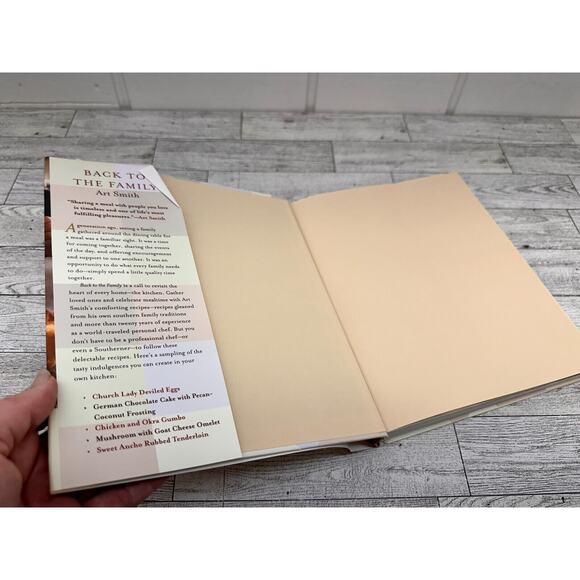 BACK TO
THE FAMILY
Art Smith
"Sharing a meal with people you love
is timeless and one of life's most
fulfilling pleasures."—Art Smith
A generation ago, seeing a family
gathered around the dining table for
a meal was a familiar sight. It was a time
for coming together, sharing the events
of the day, and offering encouragement
and support to one another. It was an
opportunity to do what every family needs
to do—simply spend a little quality time
together.
Back to the Family is a call to revisit the
heart of every home—the kitchen. Gather
loved ones and celebrate mealtime with Art
Smith's comforting recipes—recipes gleaned
from his own southern family traditions
and more than twenty years of experience
as a world-traveled personal chef. But you
don't have to be a professional chef—or
even a Southerner—to follow these
delectable recipes. Here's a sampling of the
tasty indulgences you can create in your
own kitchen:
• Church Lady Deviled Eggs
• German Chocolate Cake with Pecan-
Coconut Frosting
• Chicken and Okra Gumbo
• Mushroom with Goat Cheese Omelet
• Sweet Ancho Rubbed Tenderloin